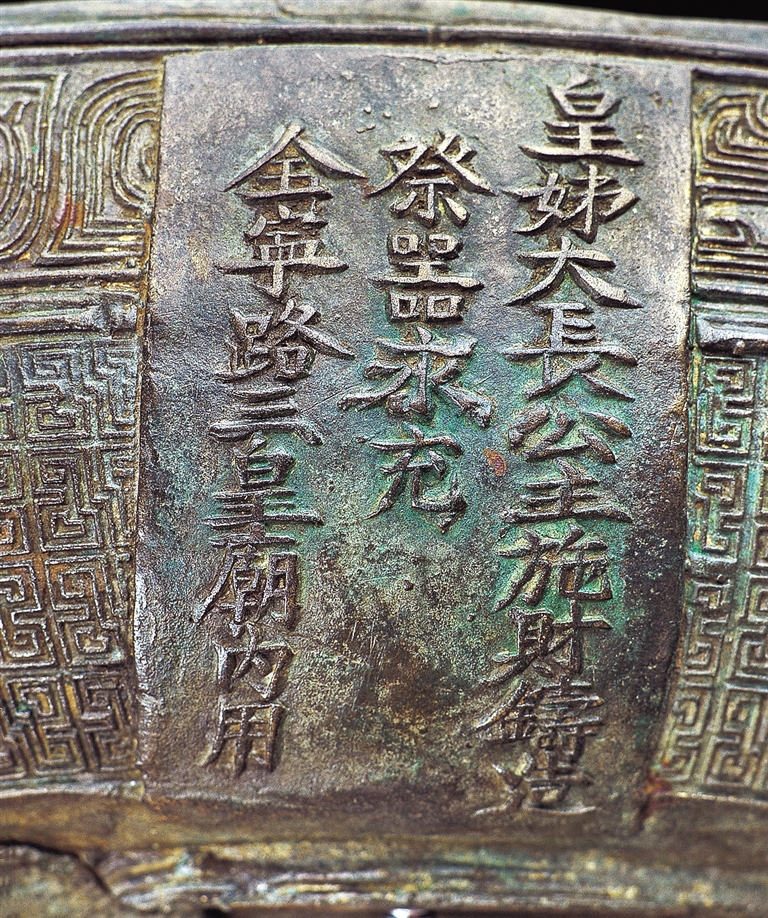 皇姊大長公主施財鑄造
祭器永充
全寧路三皇廟内用